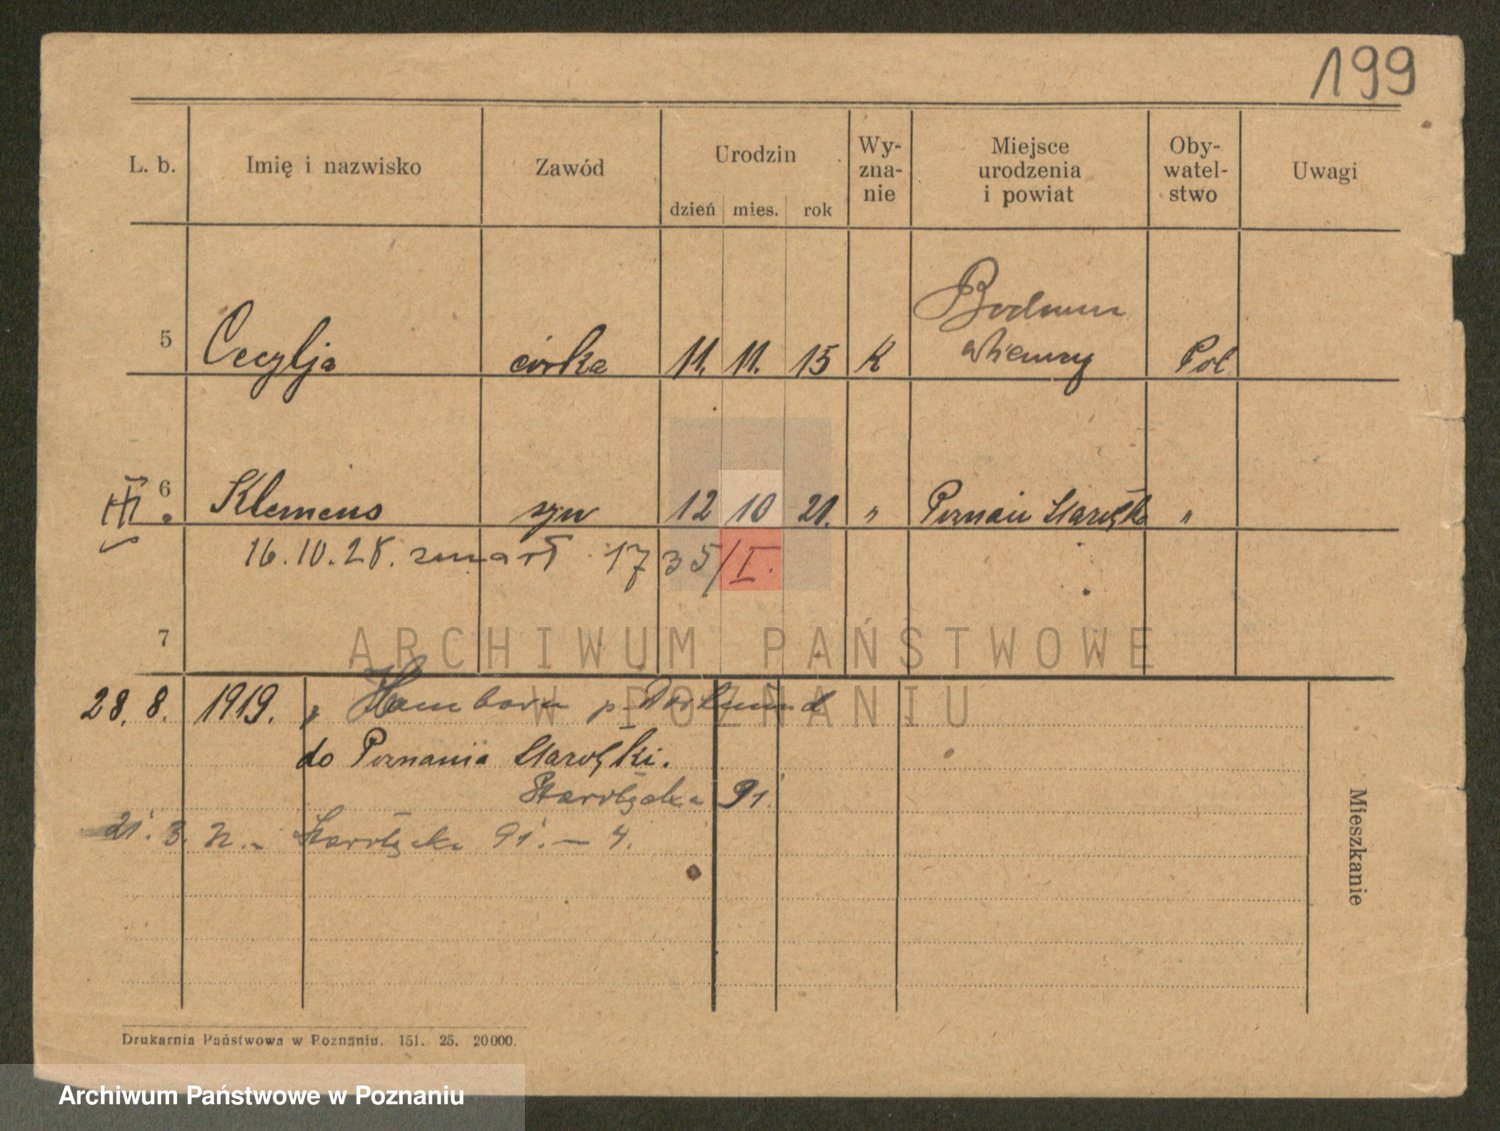 199
L. b. Imię i nazwisko Zawód Urodzin dzień mies. rok Wy-zna-nie Miejsce urodzenia i powiat Oby-watel-stwo Uwagi
Bochum
5 Cecylja córka 11. 11. 15 K Niemcy Pol
6 Klemens syn 12 10 21. " Poznań Starołęka "
16.10.28. zmarł 1735/I.
7
ARCHIWUM PAŃSTWOWE
W POZNANIU
28. 8. 1919. z Hamborn p. Dortmund
do Poznania Starołęki.
Starołęcka 91
21. 3. 32. - Starołęcka 91. - 4.
Mieszkanie
Drukarnia Państwowa w Poznaniu. 151. 25. 20000.
Archiwum Państwowe w Poznaniu